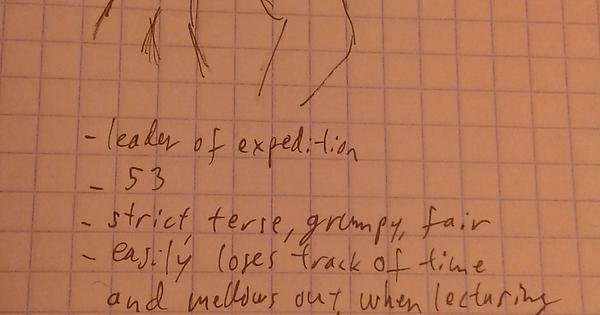 - leader of expedition
- 53
- strict, terse, grumpy, fair
- easily loses track of time
and mellows out, when lecturing